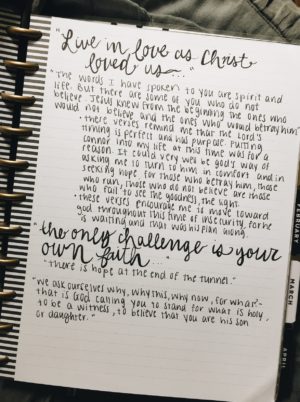 "Live in love as Christ
loved us...."
"The words I have spoken to you are spirit and
life. But there are some of you who do not
believe. Jesus knew from the beginning the ones who
would not believe and the ones who would betray him."
• these verses remind me that the Lord's
timing is perfect and has purpose. Putting
connor into my life at this time was for a
reason. It could very well be god's way of
asking me to turn to him in comfort and in
seeking hope. for those who betray him, those
who run, those who do not believe are those
who fail to see the goodness, the light.
• these verses encourage me to move toward
god throughout this time of insecurity, for he
is waiting and that was his plan along.
"the only challenge is your
own faith...."
"there is hope at the end of the tunnel."
"We ask ourselves why, why this, why now, for what?-
that is God calling you to stand for what is holy,
to be a witness, to believe that you are his son
or daughter."
MARCH
APRIL